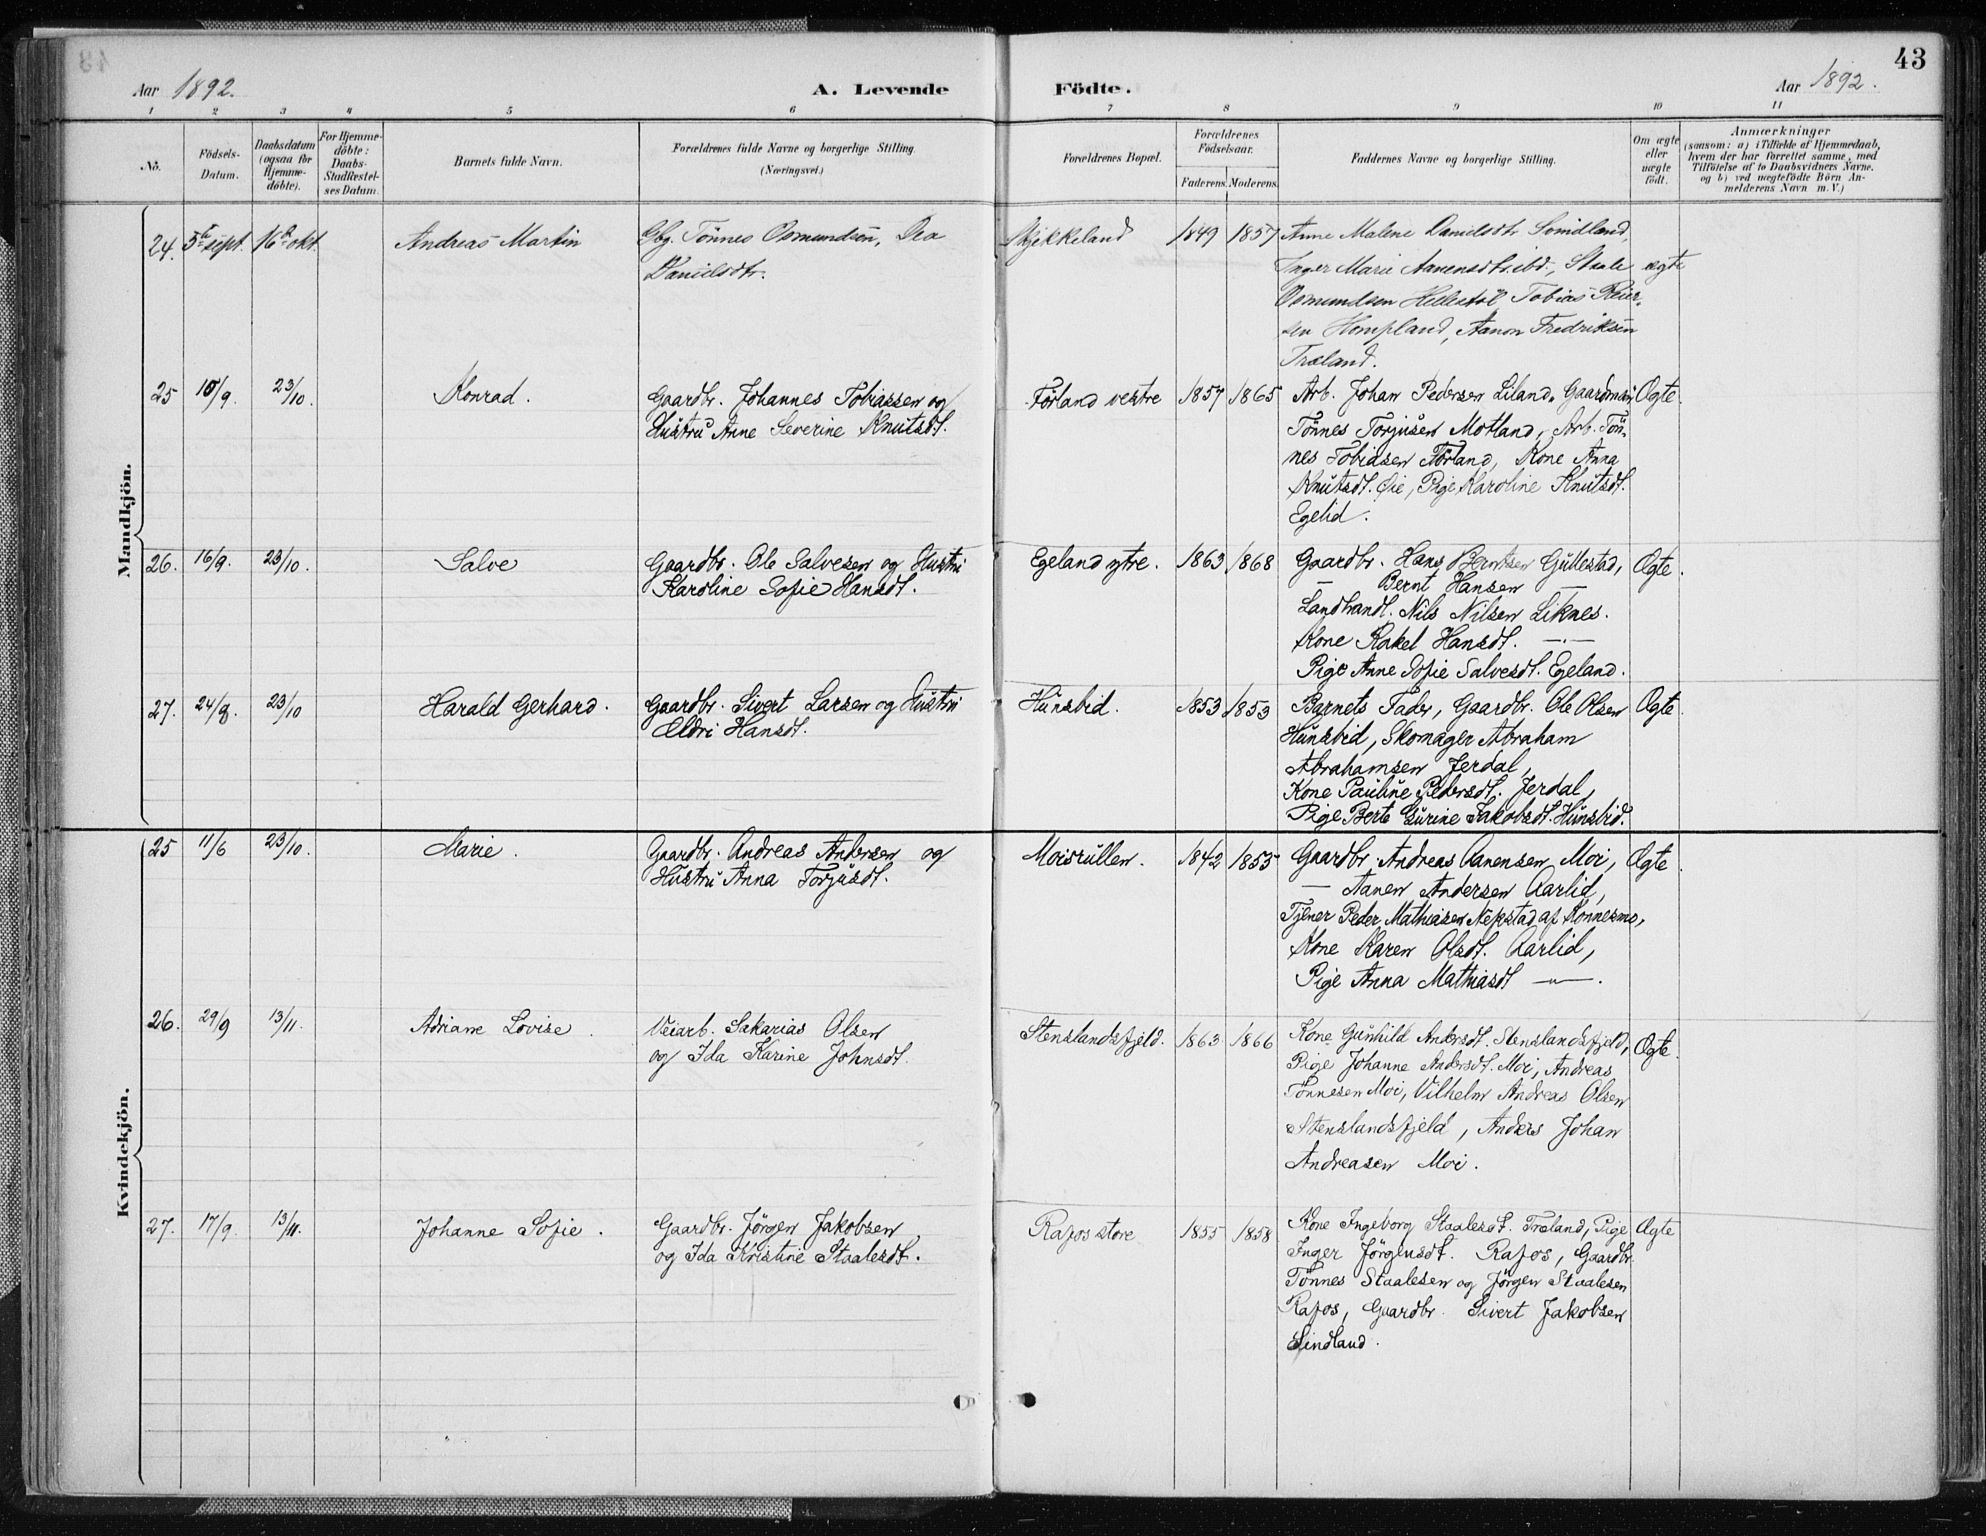 43
Aar 1892.
A. Levende Födte.
Aar 1892.
1 2 3 4 5 6 7 8 9 10 11
No.
Födsels-
Datum.
Daabsdatum
(ogsaa for
Hjemme-
döbte).
For Hjemme-
döbte:
Daabs-
Stadfæstel-
ses Datum.
Barnets fulde Navn.
Forældrenes fulde Navne og borgerlige Stilling.
(Næringsvei.)
Forældrenes Bopæl.
Forældrenes
Födselsaar.
Faderens. Moderens.
Faddernes Navne og borgerlige Stilling.
Om ægte
eller
uægte
födt.
Anmærkninger
(saasom: a) i Tilfælde af Hjemmedaab,
hvem der har forrettet samme, med
Tilföielse af to Daabsvidners Navne.
og b) ved uægtefödte Börn An-
melderens Navn m. V.)
Mandkjön.
24. 5te sept. 16de okt. Andreas Martin
Gbg. Tönnes Osmundsen, Dea
Danielsdtr.
Skjekkeland 1849 1857
Anne Malene Danielsdtr Svindland,
Inger Marie Aanensdtr. ibd., Staale
Osmundsen Hellestöl Tobias Reier-
sen Hompland, Aanon Fredriksen
Træland.
ægte
25 10/9. 23/10. Konrad.
Gaardbr. Johannes Tobiassen og
Hustru Anne Severine Knutsdt.
Førland vestre 1857 1865
Arb. Johan Pedersen Liland, Gaardman
Tönnes Torjusen Motland, Arb. Tön-
nes Tobiasen Førland, Kone Anna
Knutsdt. Øie, Pige Karoline Knutsdt.
Egelid.
Ægte.
26. 16/9. 23/10. Salve
Gaardbr. Ole Salvesen og Hustru
Karoline Sofie Hansdt.
Egeland ytre. 1863 1868
Gaardbr. Hans Berntsen Gullestad,
— Bernt Hansen —
Landhandl. Nils Nilsen Liknes.
Kone Rakel Hansdt. —.—
Pige Anne Sofie Salvesdt. Egeland.
Ægte.
27. 24/8. 23/10 Harald Gerhard.
Gaardbr. Sivert Larsen og Hustru
Eldri Hansdt.
Hunsbid. 1853 1853
Barnets Fader, Gaardbr. Ole Olsen
Hunsbid, Skomager Abraham
Abrahamsen Jerdal,
Kone Pauline Pedersdt. Jerdal,
Pige Berte Gurine Jakobsdt. Hunsbid.
Ægte.
Kvindekjön.
25 11/6 23/10. Marie.
Gaardbr. Andreas Andersen og
Hustru Anna Torjusdt.
Moisrullen. 1842 1855
Gaardbr. Andreas Aanensen Moi,
— Aanen Andersen Aarlid,
Tjener Peder Mathiasen Nepstad af Konnesmo,
Kone Karen Olsdt. Aarlid,
Pige Anna Mathiasdt —.
Ægte.
26. 29/9 13/11. Adriane Lovise.
Veiarb. Sakarias Olsen
og Ida Karine Johnsdt.
Stenslandsfjeld. 1863 1866
Kone Gunhild Andersdt. Stenslandsfjeld,
Pige Johanne Andersdt. Moi, Andreas
Tönnesen Moi, Vilhelm Andreas Olsen
Stenslandsfjeld, Anders Johan
Andreasen Moi.
Ægte.
27. 17/9. 13/11. Johanne Sofie.
Gaardbr. Jörgen Jakobsen
og Ida Kristine Staalesdt.
Rafos store 1855 1858
Kone Ingeborg Staalesdt. Træland, Pige
Inger Jörgensdt. Rafos, Gaardbr.
Tönnes Staalesen og Jörgen Staalesen
Rafos, Gaardbr. Sivert Jakobsen
Sindland.
Ægte